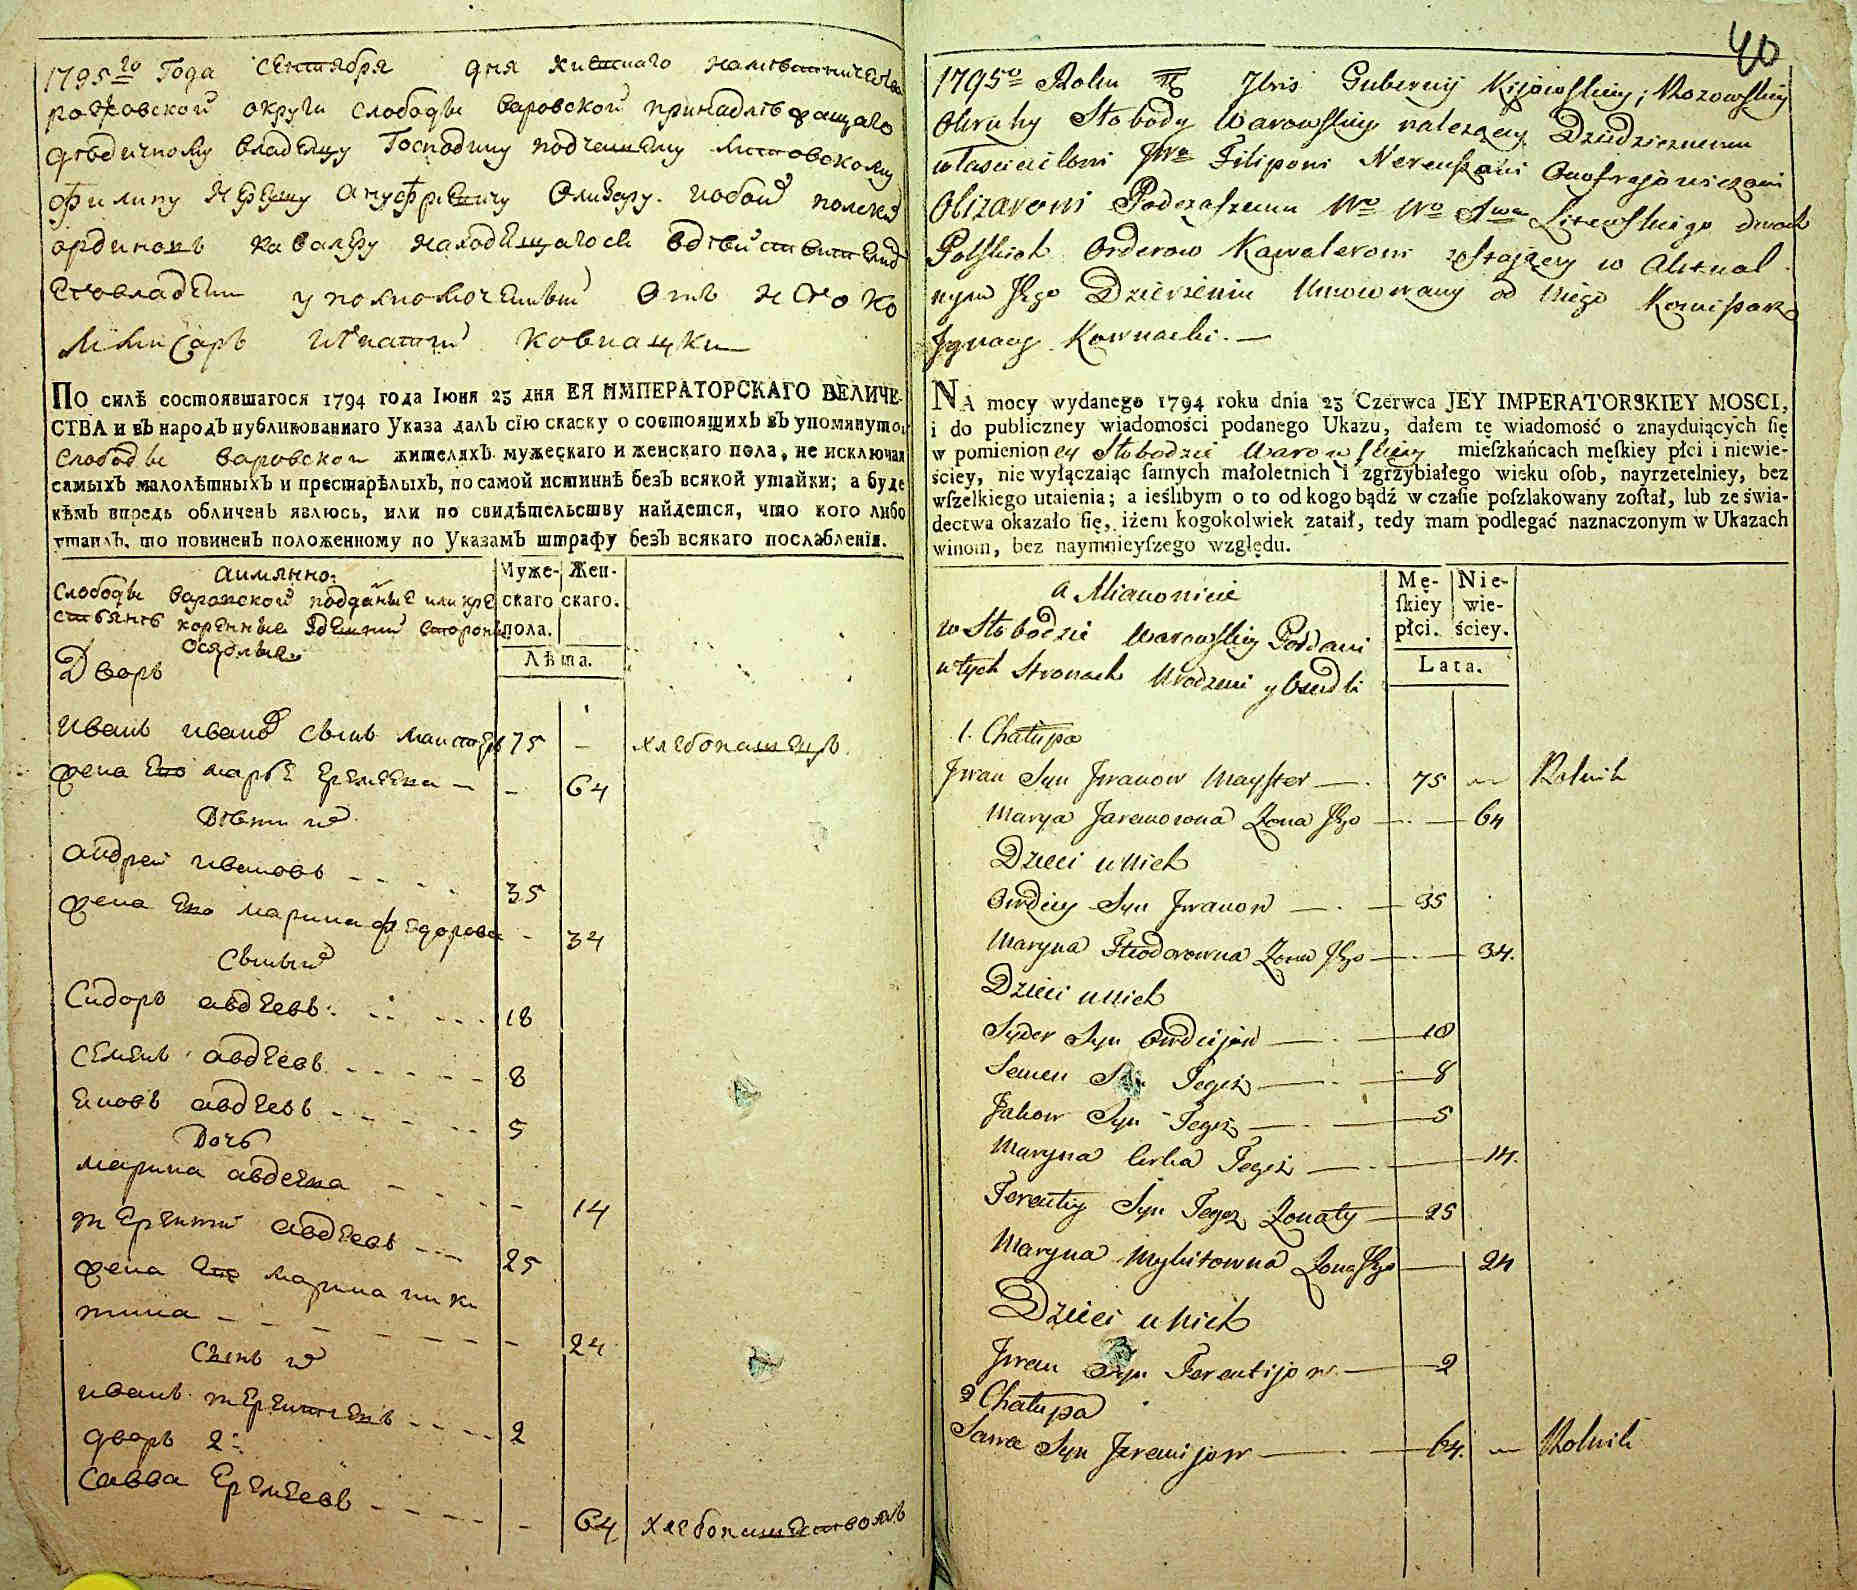 1795го Года Сентября дня Киевскаго Намѣстничества
округи слободы Варовской принадлежащаго
дѣдичному владелцу Господину подчашему литовскому
Филипу Нереушу Ануфриевичу Олизару. и обоих полских
ординовъ кавалеру находящагося
его владении уполномоченный отъ него ко
мисаръ Игнатий Ковнацки
ПО силѣ состоявшагося 1794 года Iюня 23 дня ЕЯ ИМПЕРАТОРСКАГО ВЕЛИЧЕ-
СТВА и въ народъ публикованнаго Указа далъ сїю скаску о состоящихъ въ упомянутой
Слободѣ Варовской жителяхъ мужескаго и женскаго пола, не исключая
самыхъ малолѣтныхъ и престарѣлыхъ, по самой истиннѣ безъ всякой утайки; а буде
кѣмъ впредь обличенъ явлюсь, или по свидѣтельству найдется, что кого либо
утаилъ, то повиненъ положенному по Указамъ штрафу безъ всякаго послабленїя.
аимянно:
Слободы Варовской подданые или кре
стьянъ коренные здешний стороны
оседлые
Муже-
скаго
пола.
Жен-
скаго.
Лѣта.
Дворъ
Иванъ Ивановъ сынъ Маистеръ 75 – хлебопашецъ
жена его Марья Еремеева – – 64
Дѣти их
Андрей Ивановъ 35
жена ево Марина Федорова – 34
Сыны их
Сидоръ Авдеевъ 18
Семенъ Авдеевъ 8
Яковъ Авдеевъ 5
Дочь
Марина Авдеева – 14
Терентий Авдеевъ 25
жена его Марина Ники
тина – 24
Сынъ их
Иванъ Терентиевъ 2
дворъ 2й
Савва Еремеевъ – 64
40
1795о Roku 7bris Gubernij Kijowskiey,
Okruhy Słobody Warowskiey należącey Dziedzicznemu
właścicielowi Jmo Filipowi Nereuszowi Onofrejowiczowi
Olizarowi Podczaszemu Litewskiego dwoch
Polskich Orderow Kawalerowi zostającey w Aktual
nym Jego Dzierżeniu Umocowany od Niego Komisarz
Jgnacy Kownacki. —
NA mocy wydanego 1794 roku dnia 23 Czerwca JEY IMPERATORSKIEY MOSCI,
i do publiczney wiadomości podanego Ukazu, dałem tę wiadomość o znayduiących ſię
w pomienioney Słobodzie Warowskiey mieſzkańcach męſkiey płci i niewie-
ściey, nie wyłączaiąc ſamych małoletnich i zgrzybiałego wieku oſob, nayrzetelniey, bez
wſzelkiego utaienia; a ieślibym o to od kogo bądź w czaſie poſzlakowany zoſtał, lub ze świa-
dectwa okazało ſię, iżem kogokolwiek zataił, tedy mam podlegać naznaczonym w Ukazach
winom, bez naymnieyſzego względu.
a Mianowicie
w Słobodzie Warowskiey Poddani
w tych Stronach Urodzeni y Osiedli
Mę-
ſkiey
płci.
Nie-
wie-
ściey.
Lata.
1. Chałupa
Jwan Syn Jwanow Mayster — 75 — Rolnik
Marya Jaremowna Żona Jego — 64
Dzieci u Nich
Owdiey Syn Jwanow — 35
Maryna Fteodorowna Żona Jego — 34.
Dzieci u Nich
Syder Syn Owdiejow — 18
Semen Syn Tegoż — 8
Jakow Syn Tegoż — 5
Maryna Corka Tegoż — 14.
Terentiy Syn Tegoż Żonaty — 25
Maryna Mykitowna Żona Jego — 24
Dzieci u Nich
Jwan Syn Terentijow — 2
2 Chałupa
Sawa Syn Jeremijow — 64. — Rolnik